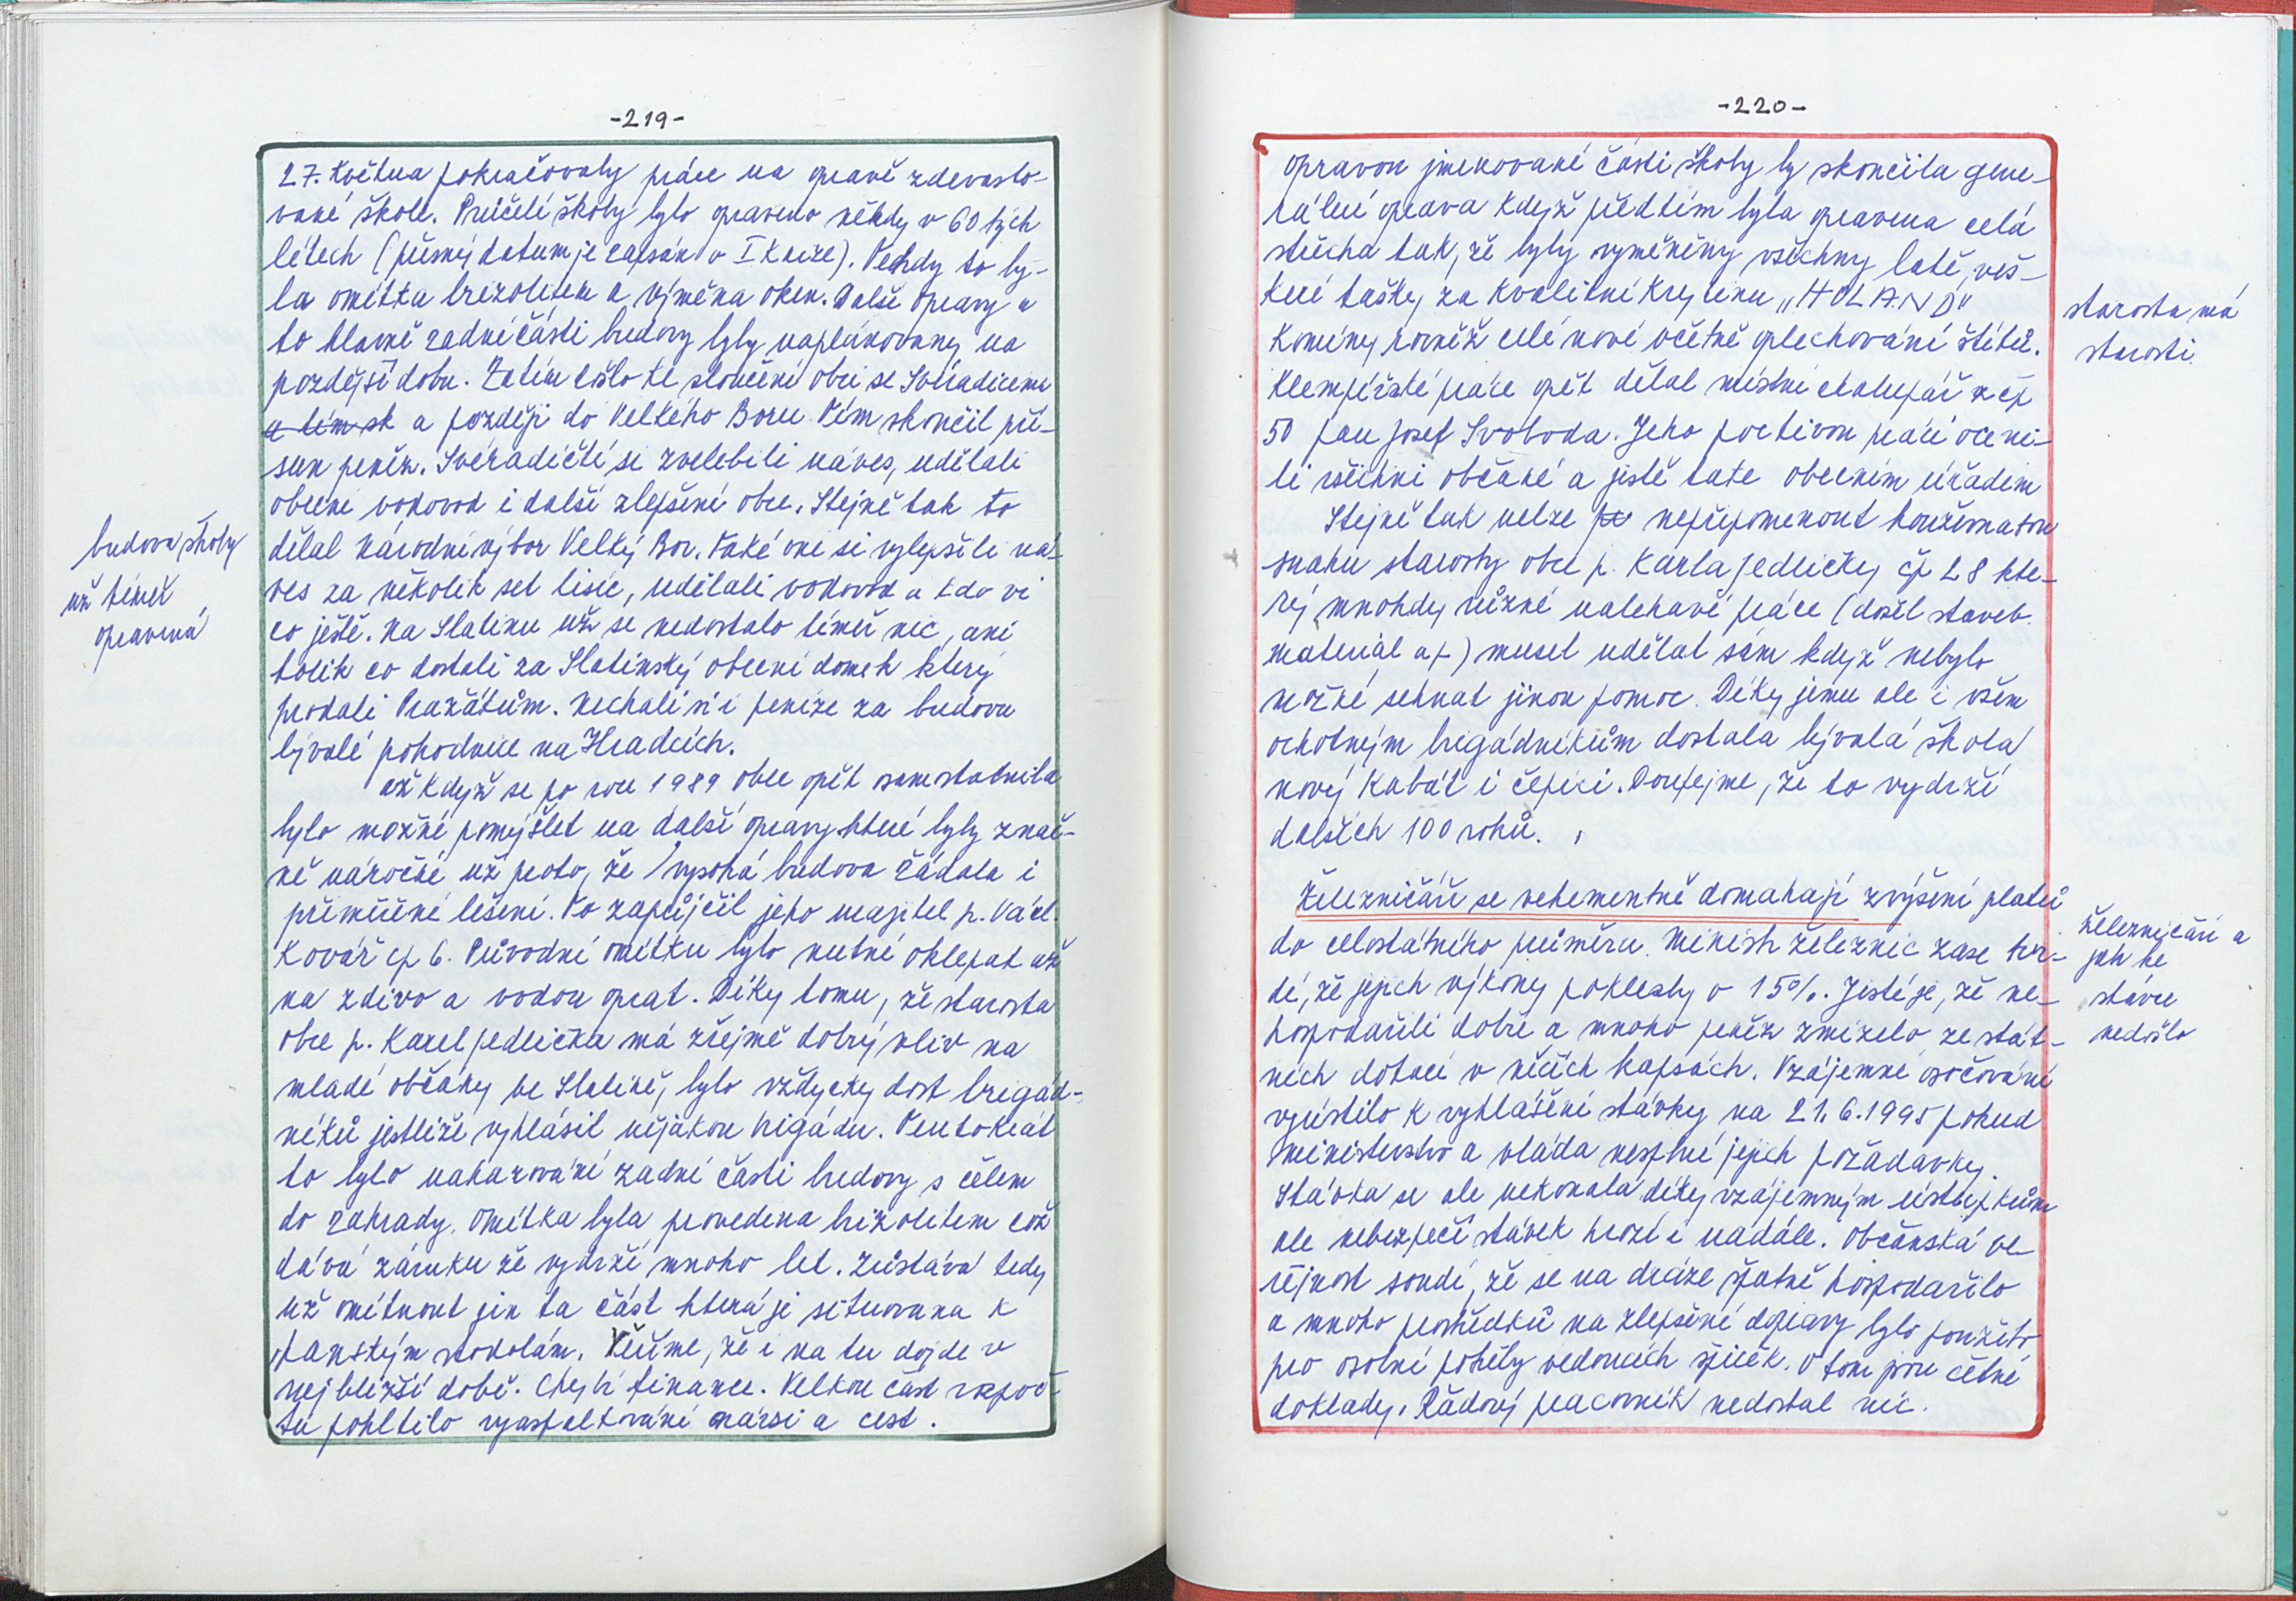 -219-
27. Května pokračovaly práce na opravě zdevasto-
vané škole. Průčelí školy bylo opraveno někdy v 60 tých
létech (přesný datum je zapsán v I Knize). Tehdy to by-
la omítka brizolitem a výměna oken. Další opravy a
to hlavně zadní části budovy byly naplánovány na
pozdější dobu. Zatím došlo ke sloučení obcí se Svéradicemi
a tím sk a později do Velkého Boru. Tím skončil pří-
sun peněz. Svéradičtí si zvelebili náves, udělali
obecní vodovod i další zlepšení obce. Stejně tak to
dělal Národní výbor Velký Bor. Také oni si vylepšili ná-
ves za několik set tisíc, udělali vodovod a kdo ví
co ještě. Na Slatinu už se nedostalo téměř nic, ani
tolik co dostali za Slatinský obecní domek který
prodali Pražátům. Nechali si i peníze za budovu
bývalé pohodnice na Hradcích.
až Když se po roce 1989 obec opět osamostatnila
bylo možné pomýšlet na další opravy které byly znač-
ně náročné už proto, že vysoká budova žádala i
přiměřené lešení. To zapůjčil jeho majitel p. Václ.
Kovář čp 6. Původní omítku bylo nutné oklepat až
na zdivo a vodou oprat. Díky tomu, že starosta
obce p. Karel Jedlička má zřejmě dobrý vliv na
mladé občany ve Slatině, bylo vždycky dost brigád-
níků jestliže vyhlásil nějakou brigádu. Tentokrát
to bylo nahazování zadní části budovy s čelem
do zahrady. Omítka byla provedena brizolitem což
dává záruku že vydrží mnoho let. Zůstává tedy
už omítnout jen ta část která je situována k
panským stodolám. Věřme, že i na tu dojde v
nejbližší době. Chybí finance. Velkou část rozpoč-
tu pohltilo vyasfaltování návsi a cest.
budova školy
už téměř
opravená
-220-
Opravou jmenované části školy by skončila gene-
rální oprava když předtím byla opravena celá
střecha tak, že byly vyměněny všechny latě, veš-
keré tašky za kvalitní krytinu „HOLAND"
Komíny rovněž celé nové včetně oplechování štítů.
Klempířské práce opět dělal místní chalupář z čp
50 pan Josef Svoboda. Jeho poctivou práci oceni-
li všichni občané a jistě také obecním úřadem
Stejně tak nelze nepřipomenout houževnatou
snahu starosty obce p. Karla Jedličky čp 28 kte-
rý mnohdy různé naléhavé práce (dosel staveb.
materiál ap) musel udělat sám když nebylo
možné sehnat jinou pomoc. Díky jemu ale i všem
ochotným brigádníkům dostala bývalá škola
nový kabát i čepici. Doufejme, že to vydrží
dalších 100 roků.
Železničáři se vehementně domahají zvýšení platů
do celostátního průměru. Ministr železnic zase tvr-
dí, že jejich výkony poklesly o 15%. Jisté je, že ne-
hospodařili dobře a mnoho peněz zmizelo ze stát-
ních dotací v něčích kapsách. Vzájemné osočování
vyústilo k vyhlášení stávky na 21.6.1995 pokud
ministerstvo a vláda nesplní jejich požadavky.
Stávka se ale nekonala díky vzájemným ústupkům
ale nebezpečí stávek hrozí i nadále. Občanská ve-
řejnost soudí, že se na dráze špatně hospodařilo
a mnoho prostředků na zlepšení dopravy bylo použito
pro osobní potřeby vedoucích špiček. O tom jsou četné
doklady. Řadový pracovník nedostal nic.
starosta má
starosti
železničáři a
jak ke
stávce
nedošlo